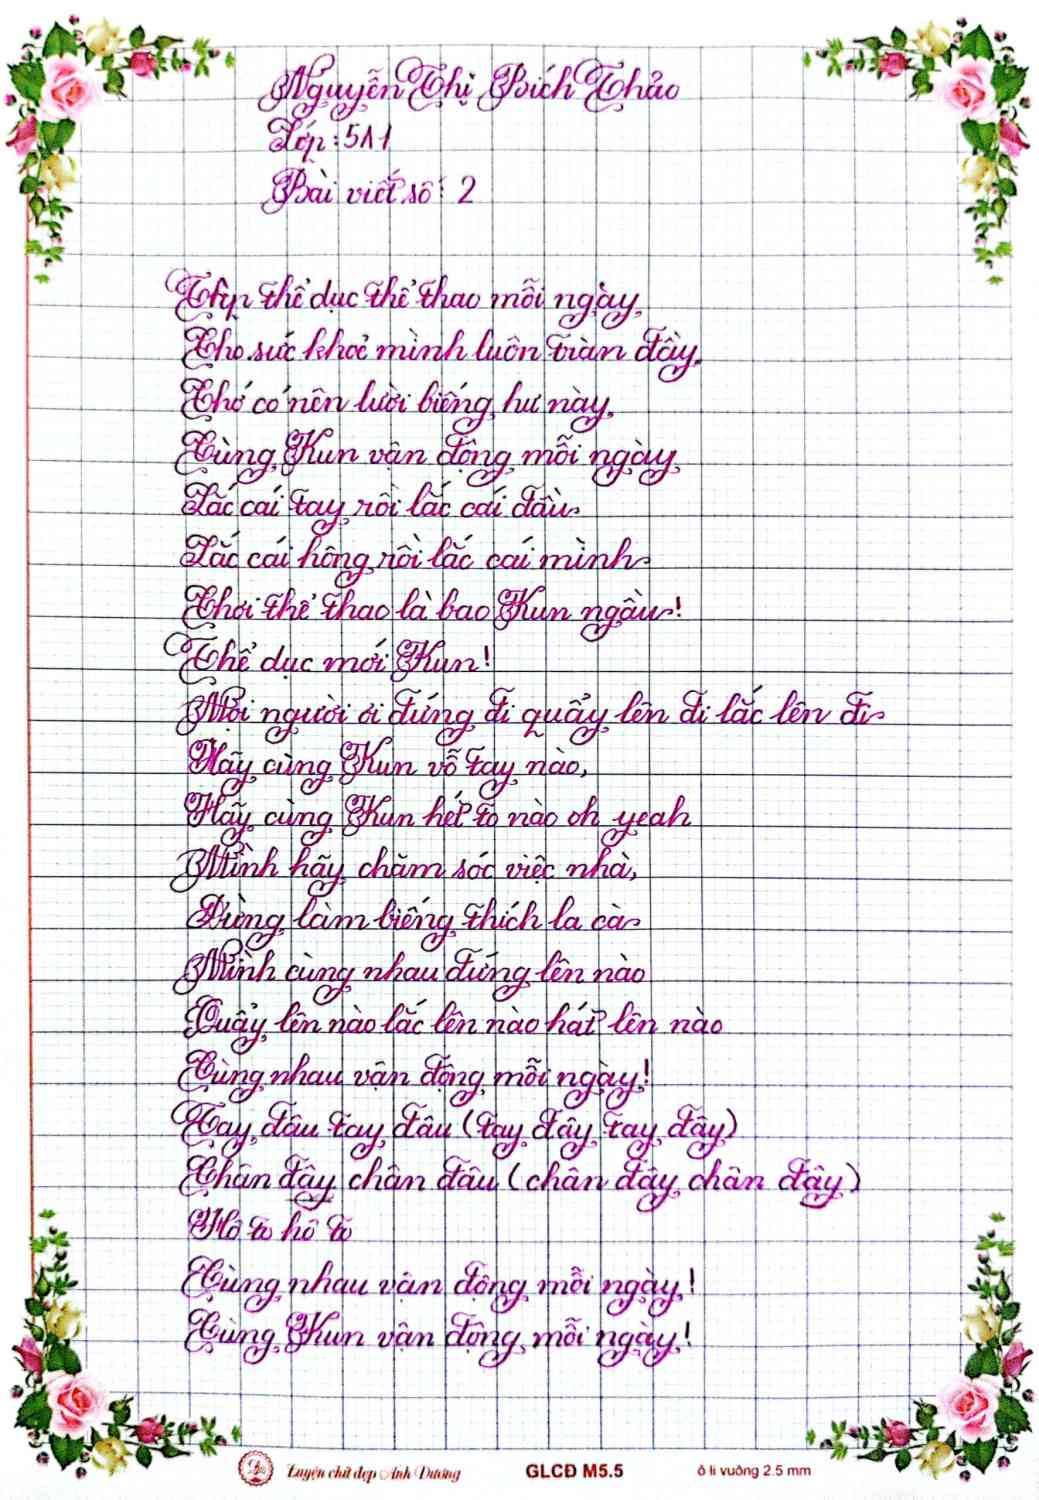 Nguyễn Thị Bích Thảo
Lớp: 5A1
Bài viết số: 2
Tập thể dục thể thao mỗi ngày,
Cho sức khoẻ mình luôn tràn đầy.
Chớ có nên lười biếng hư này,
Cùng Kun vận động mỗi ngày
Lắc cái tay rồi lắc cái đầu
Lắc cái hông rồi lắc cái mình
Chơi thể thao là bao Kun ngầu!
Thể dục mới Kun!
Mọi người ơi đứng đi quẩy lên đi lắc lên đi
Hãy cùng Kun vỗ tay nào,
Hãy cùng Kun hét to nào oh yeah
Mình hãy chăm sóc việc nhà,
Đừng làm biếng thích la cà
Mình cùng nhau đứng lên nào
Quẩy lên nào lắc lên nào hát lên nào
Cùng nhau vận động mỗi ngày!
Tay đâu tay đâu (tay đây tay đây)
Chân đây chân đâu (chân đây chân đây)
Hô to hô to
Cùng nhau vận động mỗi ngày!
Cùng Kun vận động mỗi ngày!
Luyện chữ đẹp Ánh Dương GLCĐ M5.5 ô li vuông 2.5 mm